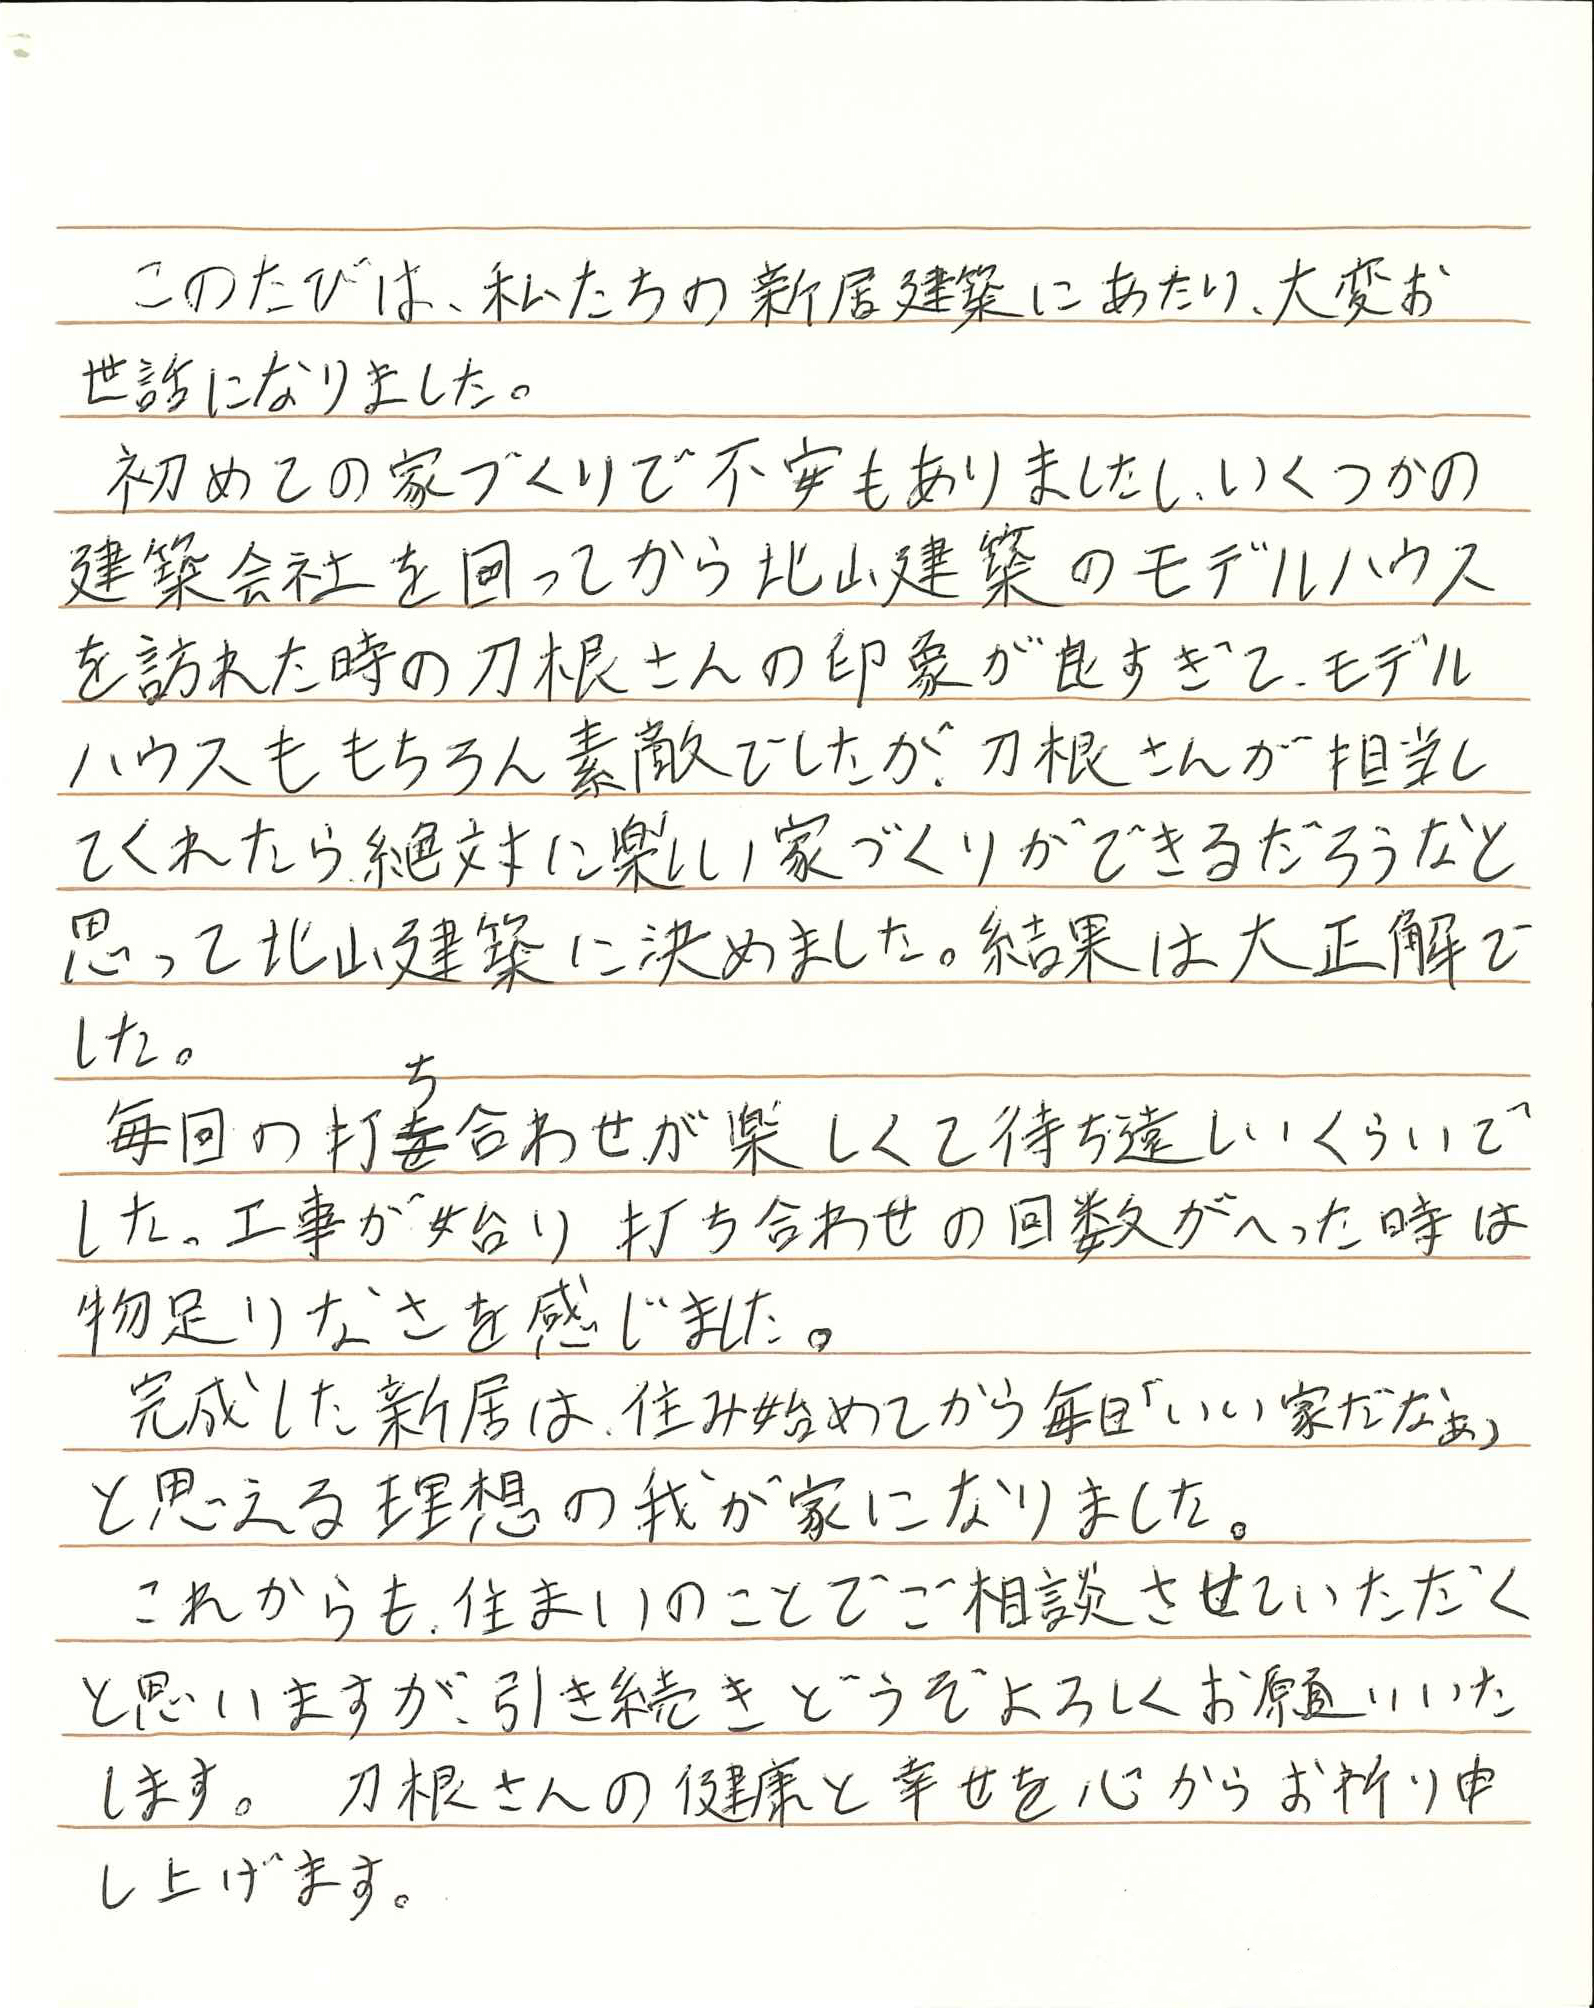 このたびは、私たちの新居建築にあたり、大変お
世話になりました。
初めての家づくりで不安もありましたし、いくつかの
建築会社を回ってから北山建築のモデルハウス
を訪れた時の刀根さんの印象が良すぎて、モデル
ハウスももちろん素敵でしたが、刀根さんが担当し
てくれたら絶対に楽しい家づくりができるだろうなと
思って北山建築に決めました。結果は大正解で
した。
毎回の打ち合わせが楽しくて待ち遠しいくらいで
した。工事が始り打ち合わせの回数がへった時は
物足りなさを感じました。
完成した新居は、住み始めてから毎日「いい家だなぁ」
と思える理想の我が家になりました。
これからも、住まいのことでご相談させていただく
と思いますが、引き続きどうぞよろしくお願いいた
します。 刀根さんの健康と幸せを心からお祈り申
し上げます。